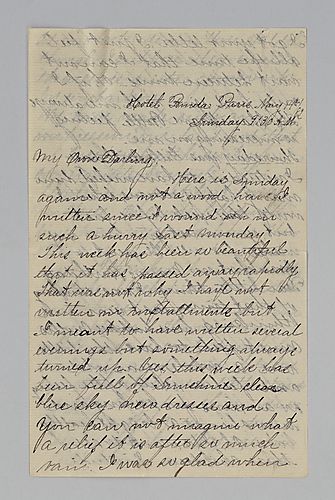 Hotel Paris, May
Sunday 9.30 A.M.
My Own Darling,
Here is Sunday
again and not a word have I
written since I wound up in
such a hurry last Monday.
This week has been so beautiful
that it has passed away rapidly.
That was not why I have not
written in installments but
I meant to have written several
evenings but something always
turned up. Yes this week has
been full of sunshine clear
blue sky, new dresses and
You can not imagine what
a relief it is after so much
rain. I was so glad when